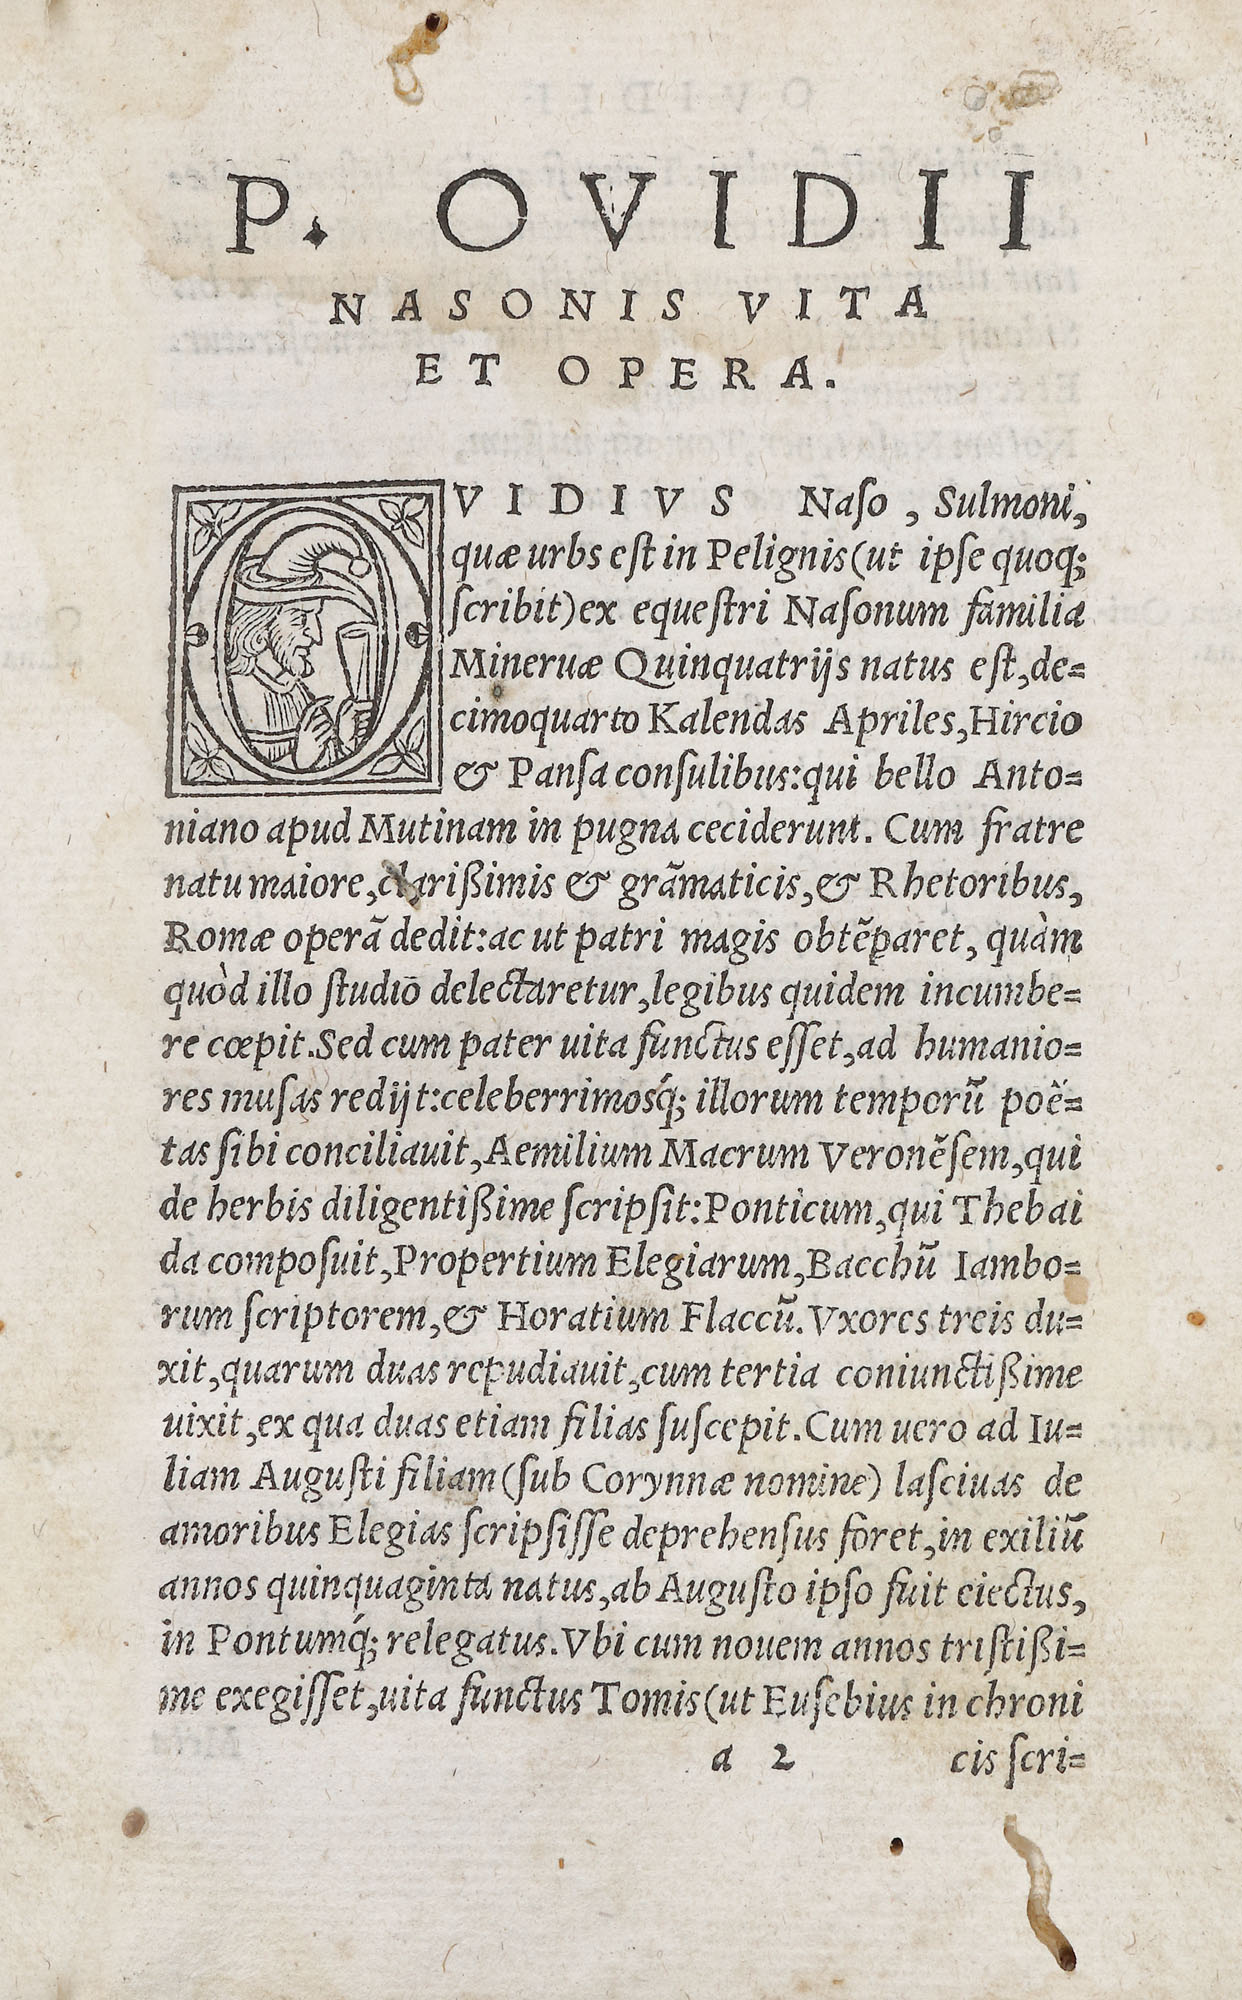 P. OVIDII
NASONIS VITA
ET OPERA.
OVIDIVS Naſo, Sulmoni,
quæ urbs eſt in Pelignis (ut ipſe quoq;
ſcribit) ex equeſtri Naſonum familia
Mineruæ Quinquatrijs natus eſt, de=
cimoquarto Kalendas Apriles, Hircio
& Panſa conſulibus: qui bello Anto=
niano apud Mutinam in pugna ceciderunt. Cum fratre
natu maiore, clarißimis & grãmaticis, & Rhetoribus,
Romæ operã dedit: ac ut patri magis obtẽparet, quàm
quòd illo ſtudio delectaretur, legibus quidem incumbe=
re cœpit. Sed cum pater uita functus eſſet, ad humanio=
res muſas redijt: celeberrimosq́; illorum temporũ poë=
tas ſibi conciliauit, Aemilium Macrum Veronẽſem, qui
de herbis diligentißime ſcripſit: Ponticum, qui Thebai
da compoſuit, Propertium Elegiarum, Bacchũ Iambo=
rum ſcriptorem, & Horatium Flaccũ. Vxores treis du=
xit, quarum duas repudiauit, cum tertia coniunctißime
uixit, ex qua duas etiam filias ſuſcepit. Cum uero ad Iu=
liam Auguſti filiam (ſub Corynnæ nomine) laſciuas de
amoribus Elegias ſcripſiſſe deprehenſus foret, in exiliũ
annos quinquaginta natus, ab Auguſto ipſo fuit eiectus,
in Pontumq́; relegatus. Vbi cum nouem annos triſtißi=
me exegiſſet, uita functus Tomis (ut Euſebius in chroni
a 2 cis ſcri=